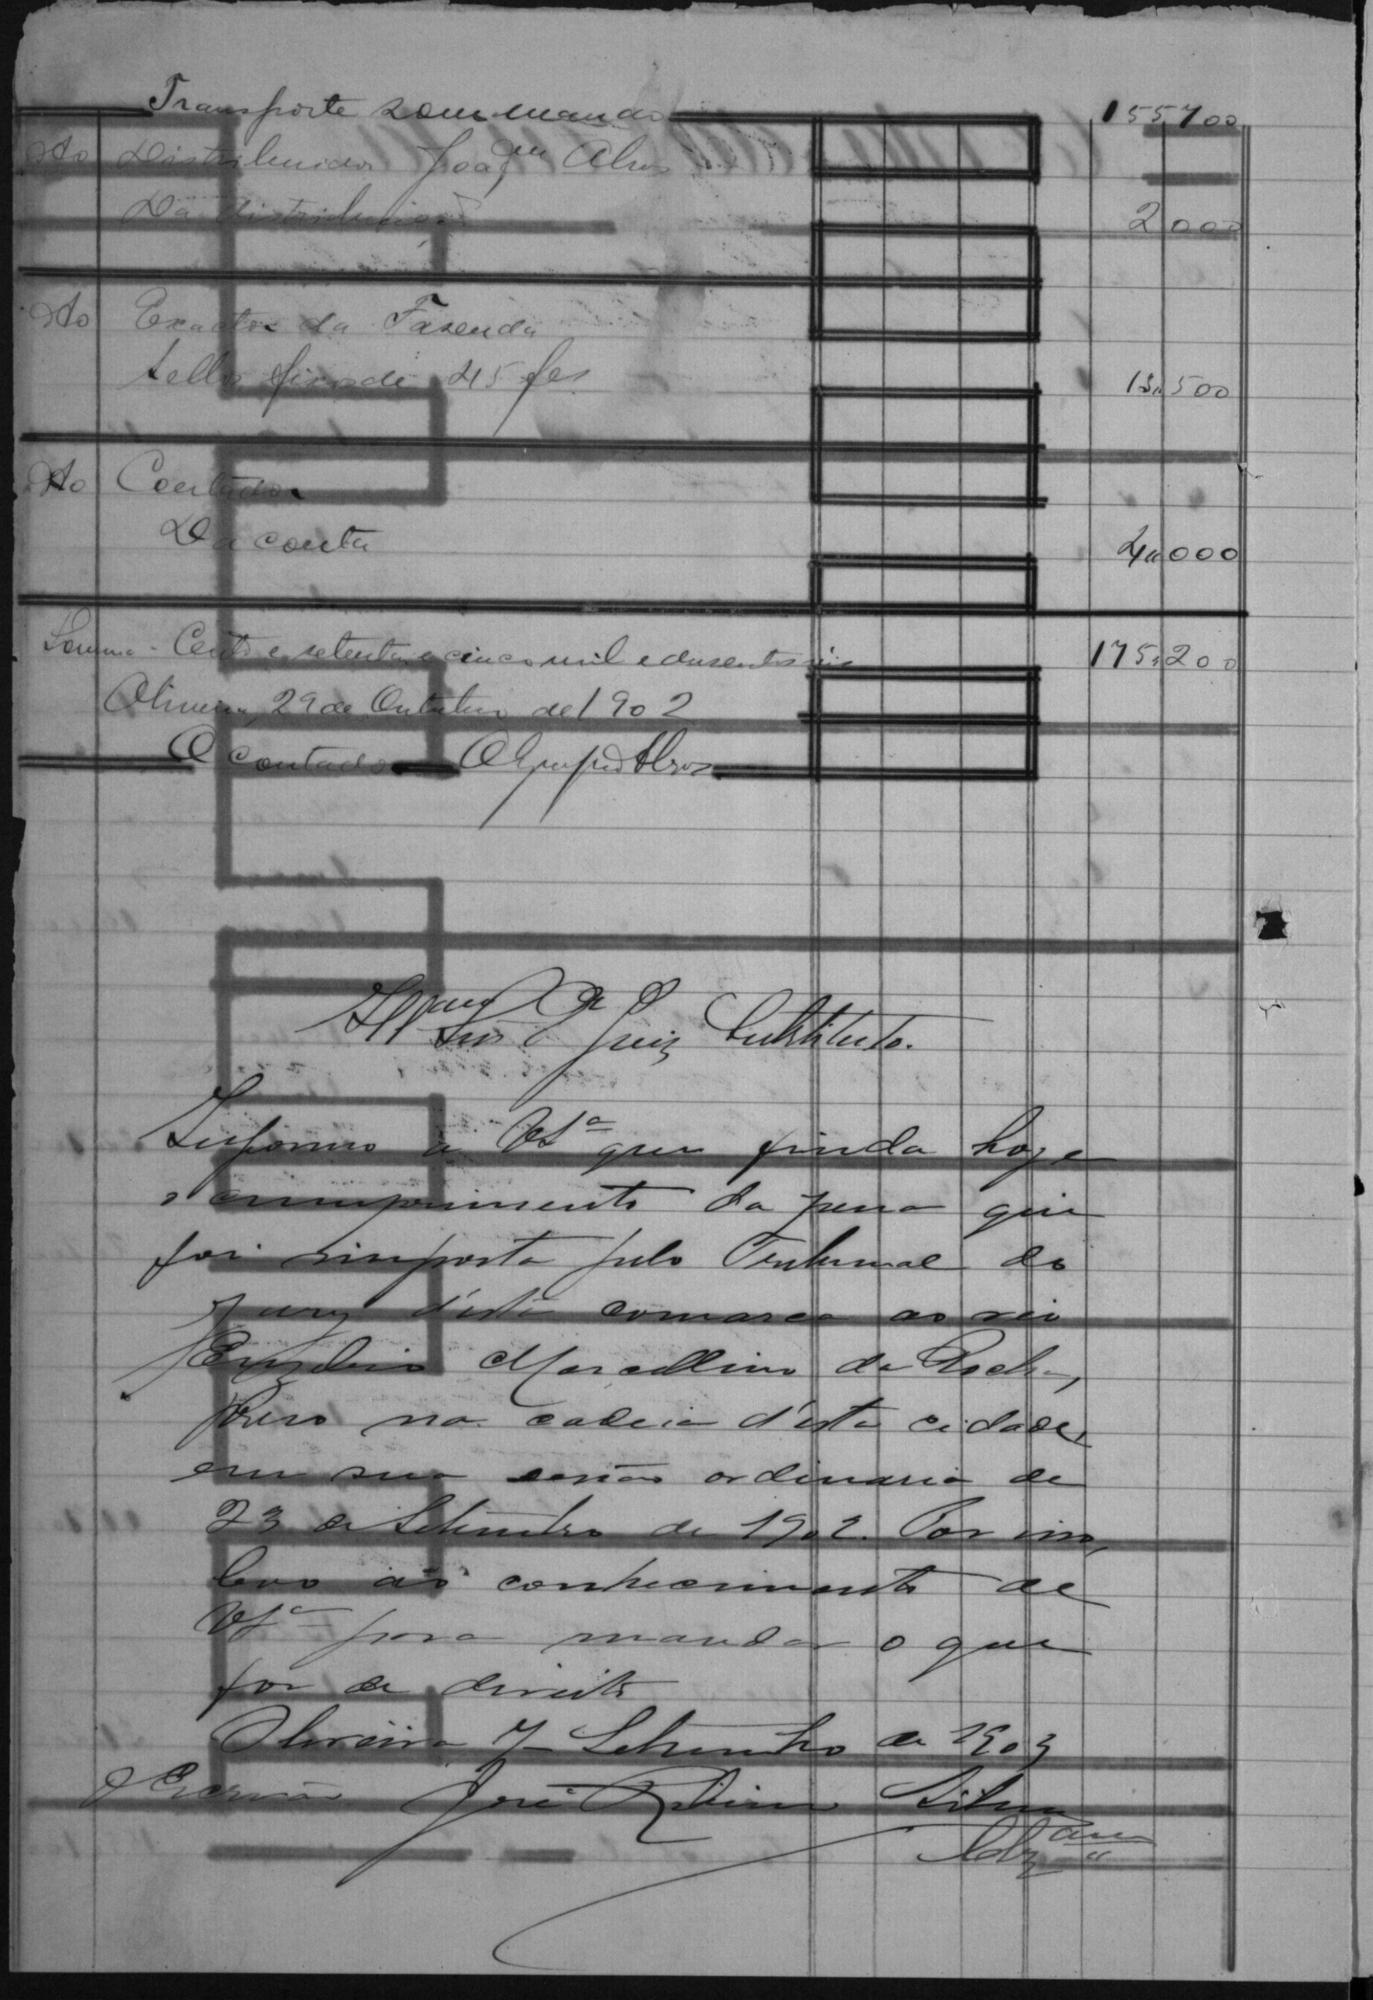 Transporte sommando 155700
Ao Distribuidor Joaqm Alves
Da distribuição 2000
Ao Exactor da Fazenda
Sello fixo de 45 fes 13,,500
Ao Contador
Da conta 4,,000
Somma - Cento e setenta e cinco mil e dusentos reis 175,200
Oliveira, 29 de Outubro de 1902
O contador Alves
Juiz Substituto.
Informo a VSª que finda hoje
o cumprimento da pena que
foi imposta pelo Tribunal do
Jury d'esta comarca ao réo
Euzebio Marcellino da Rocha,
preso na cadeia d'esta cidade,
em sua sessão ordinaria de
23 de Setembro de 1902. Por isso,
levo ao conhecimento de
VSª para mandar o que
for de direito
Oliveira 7 Setembro de 1903
O Escrivão José Ribeiro Silva